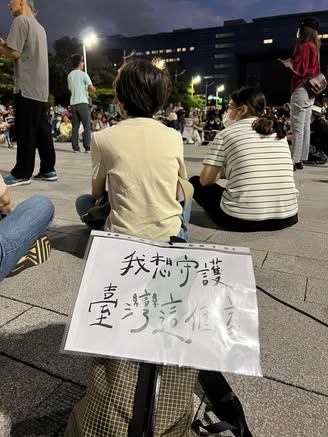 我想守護
臺灣這個